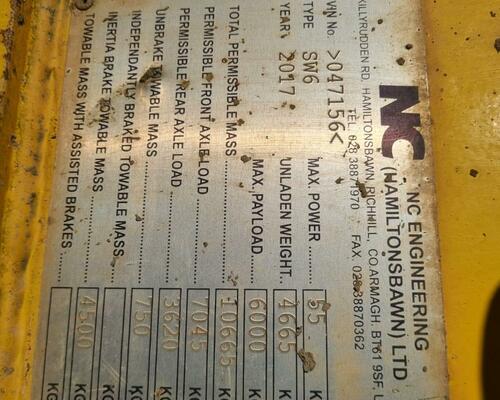 NC
NC ENGINEERING
(HAMILTONSBAWN) LTD
KILLYRUDDEN RD, HAMILTONSBAWN, RICHHILL, CO ARMAGH. BT61 9SF,
TEL. 028 38871970 FAX. 028 38870362
VIN No. >047156<
TYPE SW6 MAX. POWER 55
YEAR 2017 UNLADEN WEIGHT 4665
MAX. PAYLOAD 6000
TOTAL PERMISSIBLE MASS 10665
PERMISSIBLE FRONT AXLE LOAD 7045
PERMISSIBLE REAR AXLE LOAD 3620 KG
UNBRAKE TOWABLE MASS 750 KG
INDEPENDANTLY BRAKED TOWABLE MASS KG
INERTIA BRAKE TOWABLE MASS KG
TOWABLE MASS WITH ASSISTED BRAKES 4500 KG